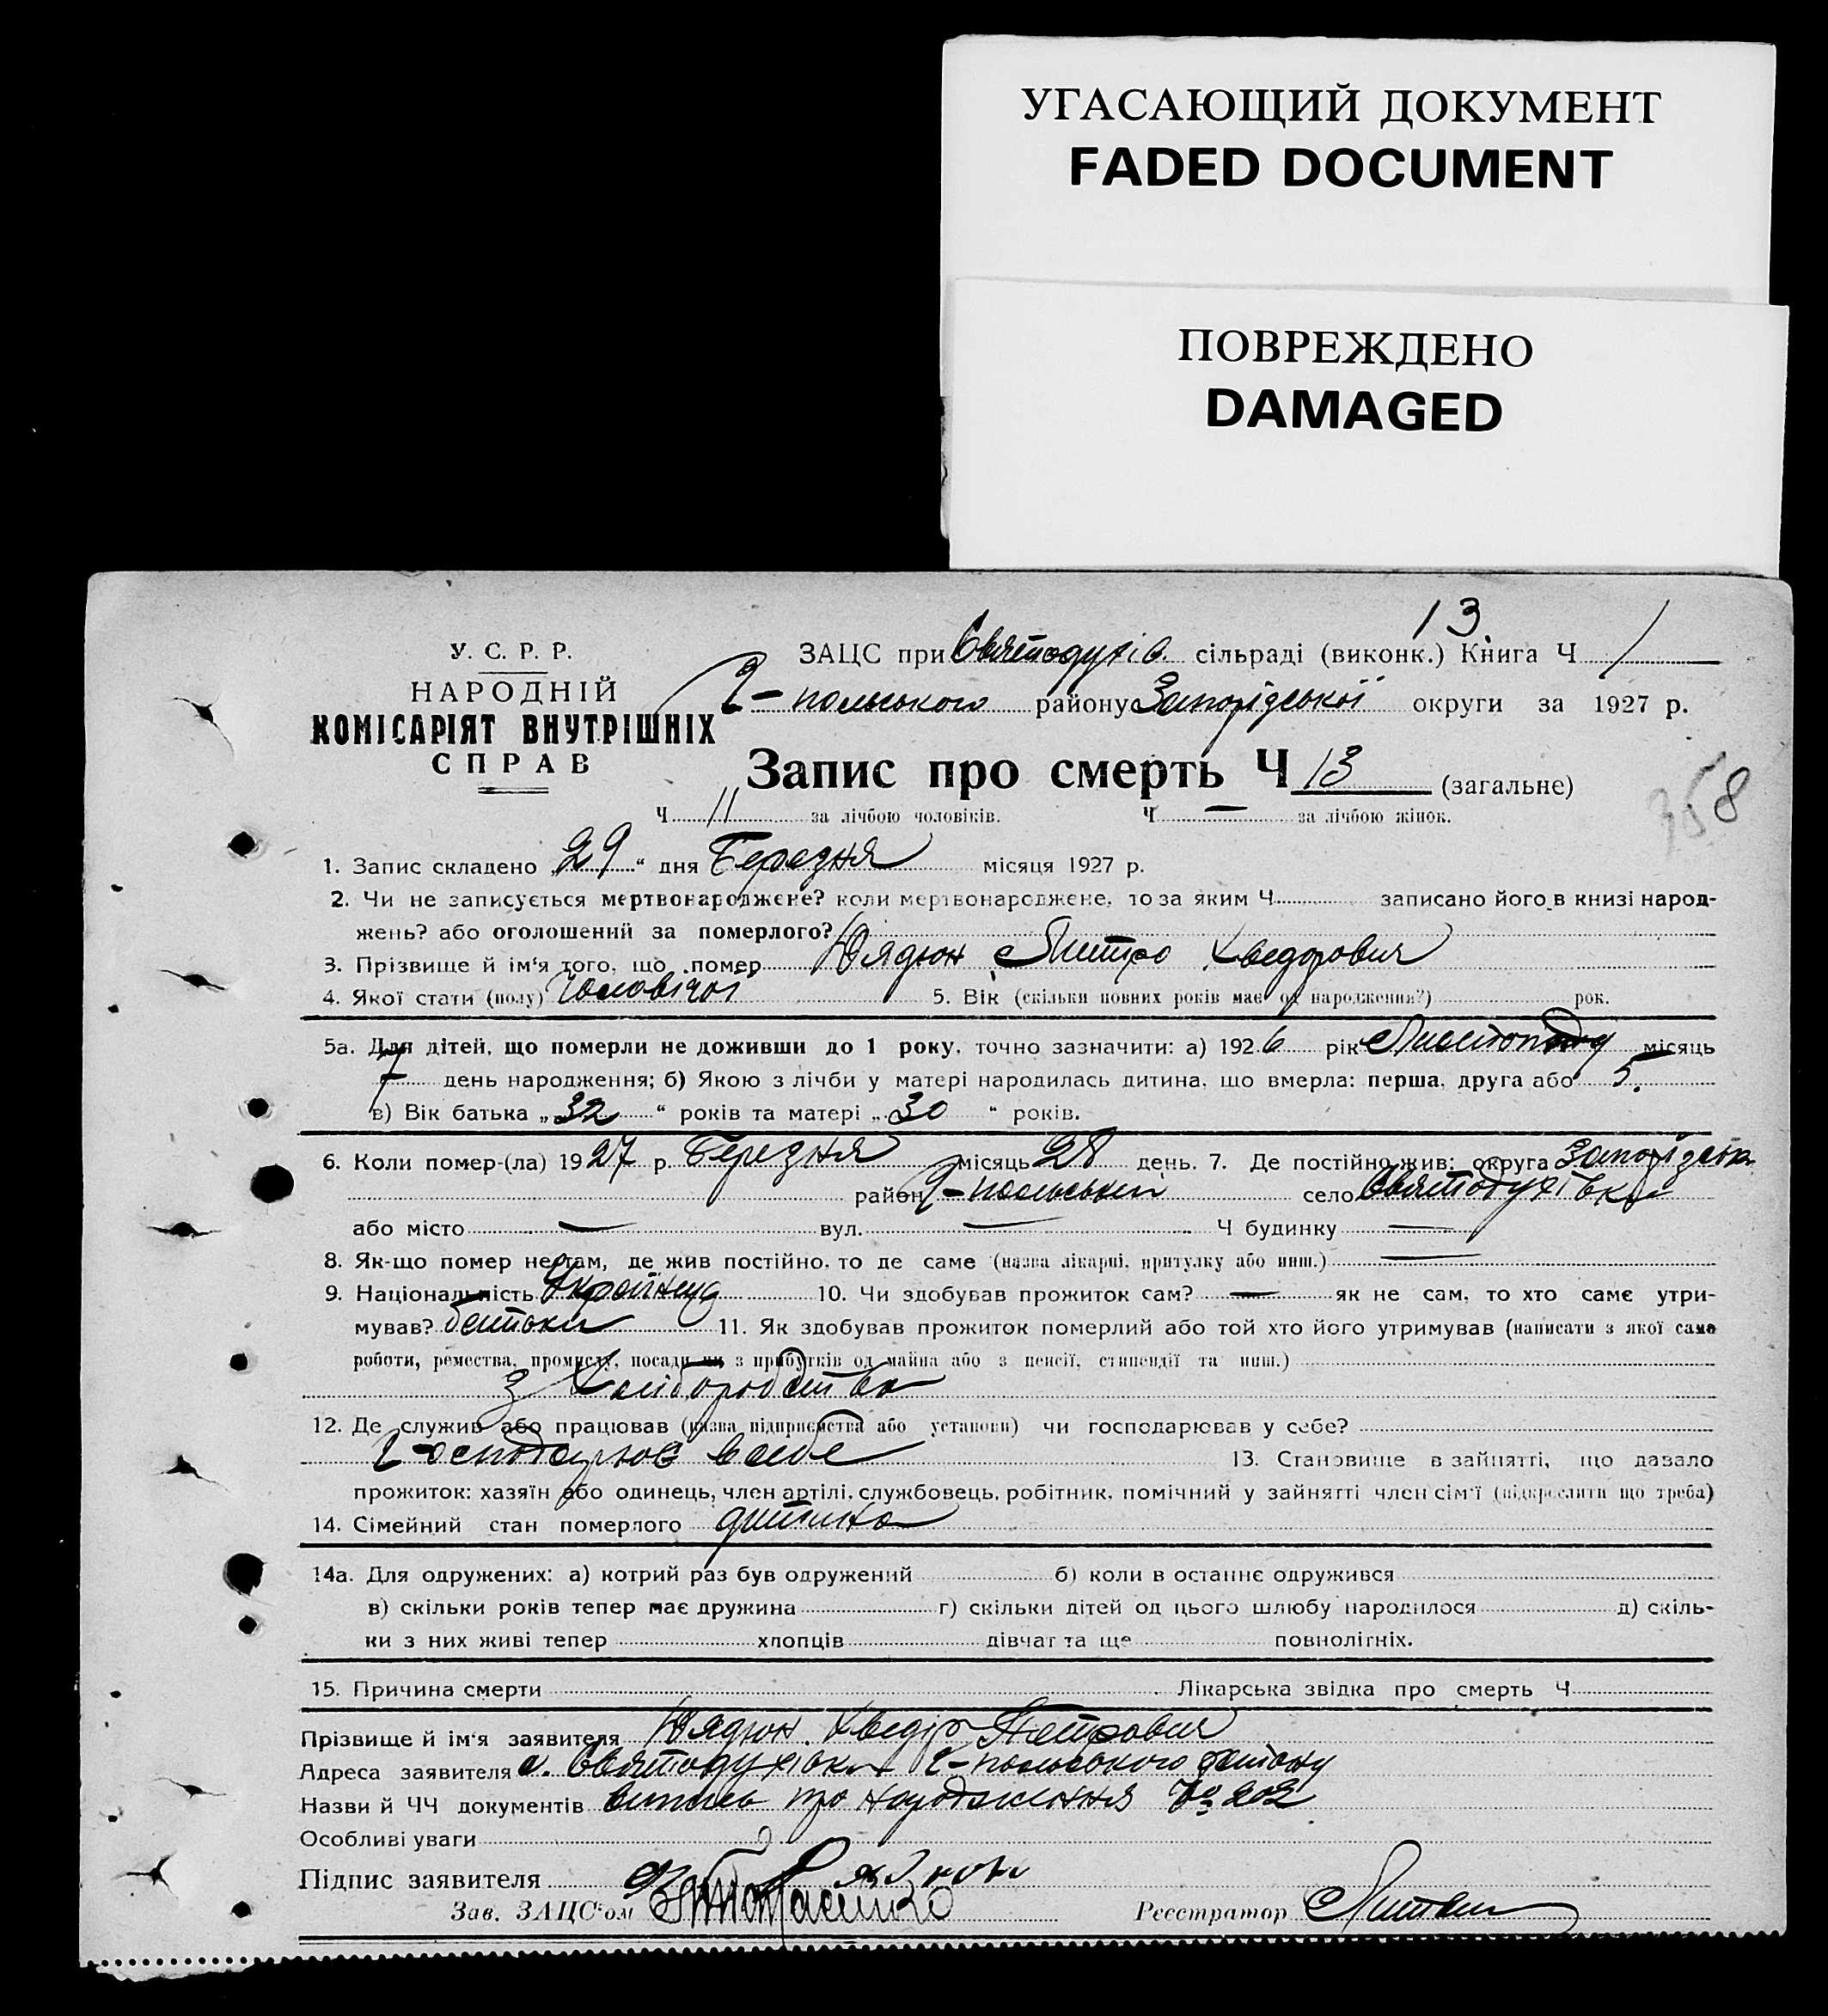 УГАСАЮЩИЙ ДОКУМЕНТ
FADED DOCUMENT
ПОВРЕЖДЕНО
DAMAGED
13
У. С. Р. Р.
НАРОДНІЙ
КОМІСАРІЯТ ВНУТРІШНІХ
СПРАВ
ЗАЦС при Святодухів. сільраді (виконк.) Книга Ч 1
Г-польського району Запорідської округи за 1927 р.
Запис про смерть Ч 13 (загальне)
358
Ч 11 за лічбою чоловіків. Ч — за лічбою жінок.
1. Запис складено „29“ дня Березня місяця 1927 р.
2. Чи не записується мертвонароджене? коли мертвонароджене, то за яким Ч записано його в книзі народ-
жень? або оголошений за померлого?
3. Прізвище й ім‘я того, що помер Дмитро Хведорович
4. Якої стати (полу) Чоловічої 5. Вік (скільки повних років має од народження?) рок.
5а. Для дітей, що померли не доживши до 1 року, точно зазначити: а) 1926 рік Листопаду місяць
7 день народження; б) Якою з лічби у матері народилась дитина, що вмерла: перша, друга або 5.
в) Вік батька „32“ років та матері „30“ років.
6. Коли помер-(ла) 1927 р. Березня місяць 28 день. 7. Де постійно жив: округа Запорідська
район Г-польський село Святодухівка
або місто — вул. — Ч будинку —
8. Як-що помер не там, де жив постійно, то де саме (назва лікарні, притулку або инш.) —
9. Національність Українец 10. Чи здобував прожиток сам? — як не сам, то хто саме утри-
мував? батьки 11. Як здобував прожиток померлий або той хто його утримував (написати з якої саме
роботи, ремества, промислу, посади чи з прибутків од майна або з пенсії, стипендії та инш.)
з Хліборобства
12. Де служив або працював (назва підприємства або установи) чи господарював у себе?
Господарював в себе 13. Становище в зайнятті, що давало
прожиток: хазяїн або одинець, член артілі, службовець, робітник, помічний у зайнятті член сім‘ї (підкреслити що треба)
14. Сімейний стан померлого дитина
14а. Для одружених: а) котрий раз був одружений б) коли в останнє одружився
в) скільки років тепер має дружина г) скільки дітей од цього шлюбу народилося д) скіль-
ки з них живі тепер хлопців дівчат та ще повнолітніх.
15. Причина смерти Лікарська звідка про смерть Ч
Прізвище й ім‘я заявителя Хведір Петрович
Адреса заявителя с. Святодухівка Г-польського району
Назви й ЧЧ документів випись про народження № 202
Особливі уваги
Підпис заявителя
Зав. ЗАЦС‘ом
Реєстратор